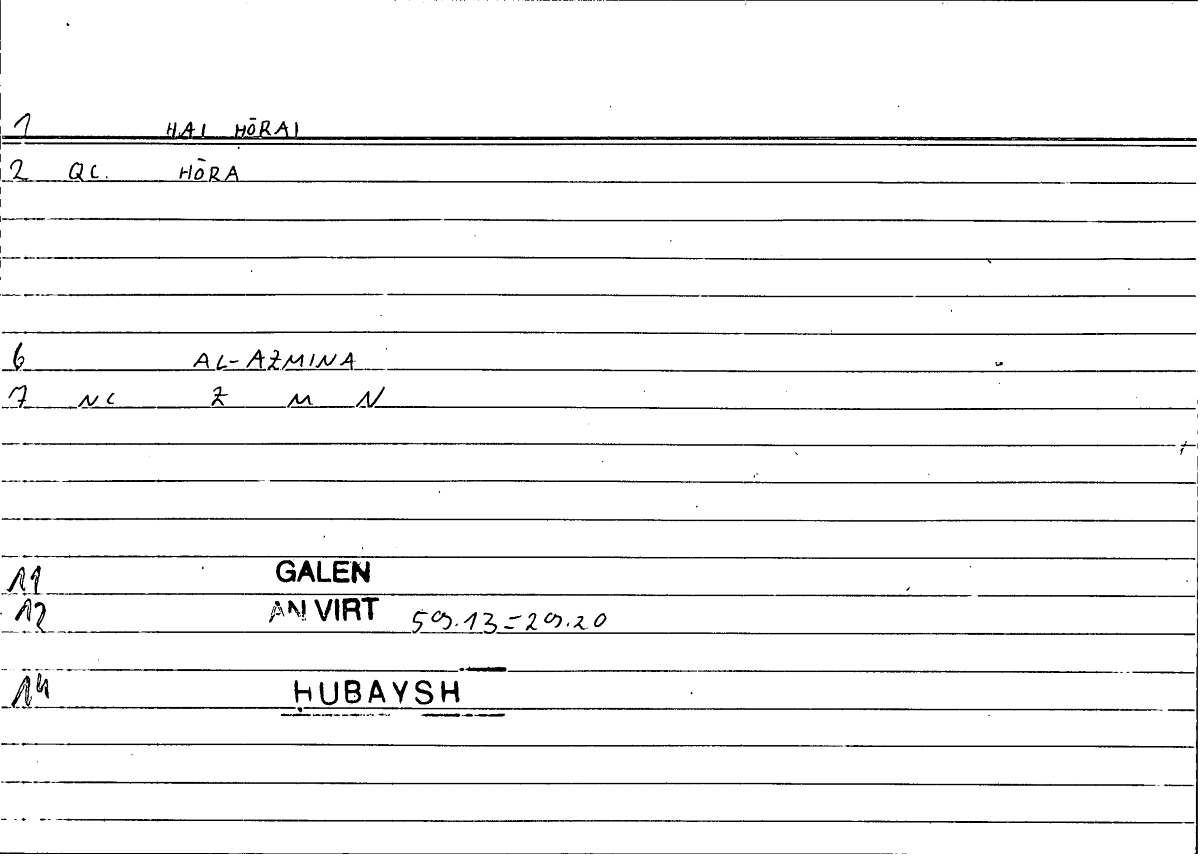 1 HAI HŌRAI
2 QC. HŌRA
6 AL-AZMINA
7 NC Z M N
11 GALEN
12 AN VIRT 59.13=29.20
14 ḤUBAYSH